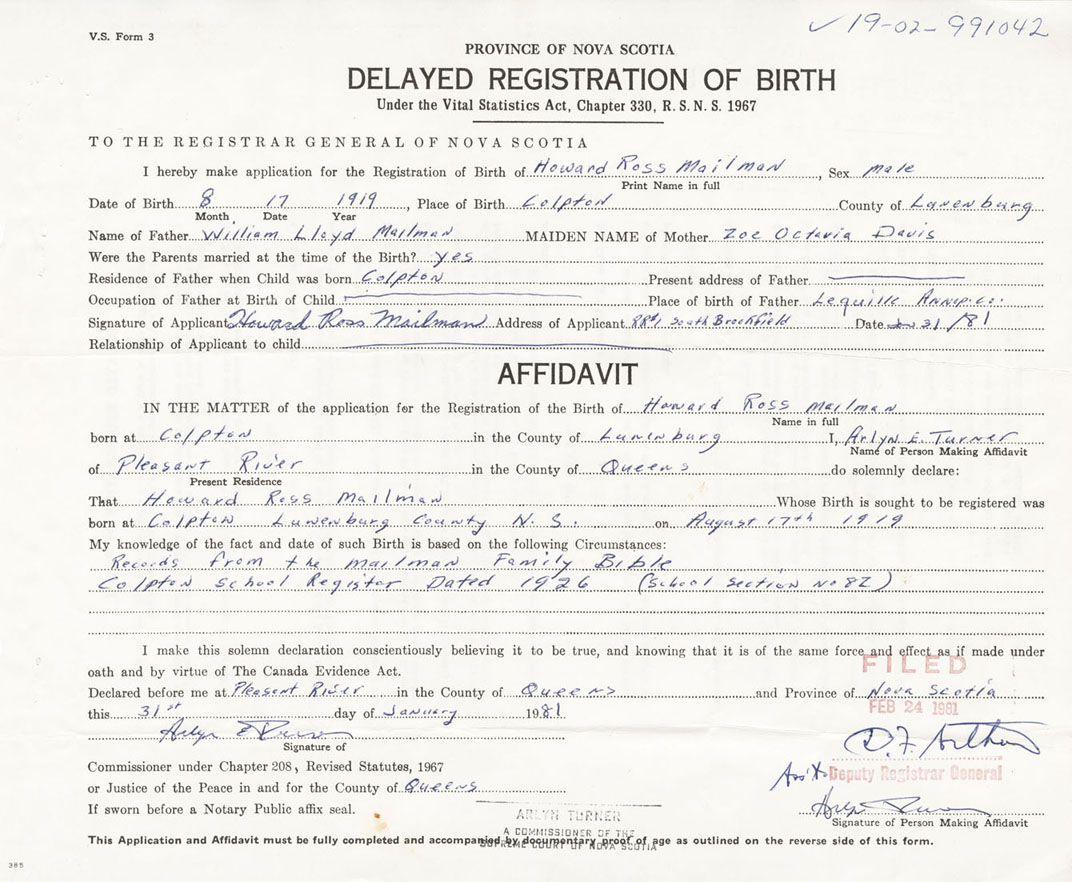 ✓ 19-02-991042
V.S. Form 3
PROVINCE OF NOVA SCOTIA
DELAYED REGISTRATION OF BIRTH
Under the Vital Statistics Act, Chapter 330, R.S.N.S. 1967
TO THE REGISTRAR GENERAL OF NOVA SCOTIA
I hereby make application for the Registration of Birth of Howard Ross Mailman, Sex male
Print Name in full
Date of Birth 8 17 1919, Place of Birth Colpton County of Lunenburg
Month Date Year
Name of Father William Lloyd Mailman MAIDEN NAME of Mother Zoe Octavia Davis
Were the Parents married at the time of the Birth? yes
Residence of Father when Child was born Colpton Present address of Father
Occupation of Father at Birth of Child Place of birth of Father Lequille Annap. Co.
Signature of Applicant Howard Ross Mailman Address of Applicant RR#1 South Brookfield Date 31/81
Relationship of Applicant to child
AFFIDAVIT
IN THE MATTER of the application for the Registration of the Birth of Howard Ross Mailman
Name in full
born at Colpton in the County of Lunenburg I, Arlyn E. Turner
Name of Person Making Affidavit
of Pleasant River in the County of Queens do solemnly declare:
Present Residence
That Howard Ross Mailman Whose Birth is sought to be registered was
born at Colpton Lunenburg County N.S. on August 17th 1919
My knowledge of the fact and date of such Birth is based on the following Circumstances:
Records from the Mailman Family Bible
Colpton School Register Dated 1926 (School Section No 82)
I make this solemn declaration conscientiously believing it to be true, and knowing that it is of the same force and effect as if made under
FILED
oath and by virtue of The Canada Evidence Act.
Declared before me at Pleasant River in the County of Queens and Province of Nova Scotia
FEB 24 1981
this 31st day of January 1981
Signature of
Commissioner under Chapter 208, Revised Statutes, 1967
Ass't Deputy Registrar General
or Justice of the Peace in and for the County of Queens
If sworn before a Notary Public affix seal.
ARLYN TURNER
Signature of Person Making Affidavit
A COMMISSIONER OF THE
SUPREME COURT OF NOVA SCOTIA
This Application and Affidavit must be fully completed and accompanied by documentary proof of age as outlined on the reverse side of this form.
385